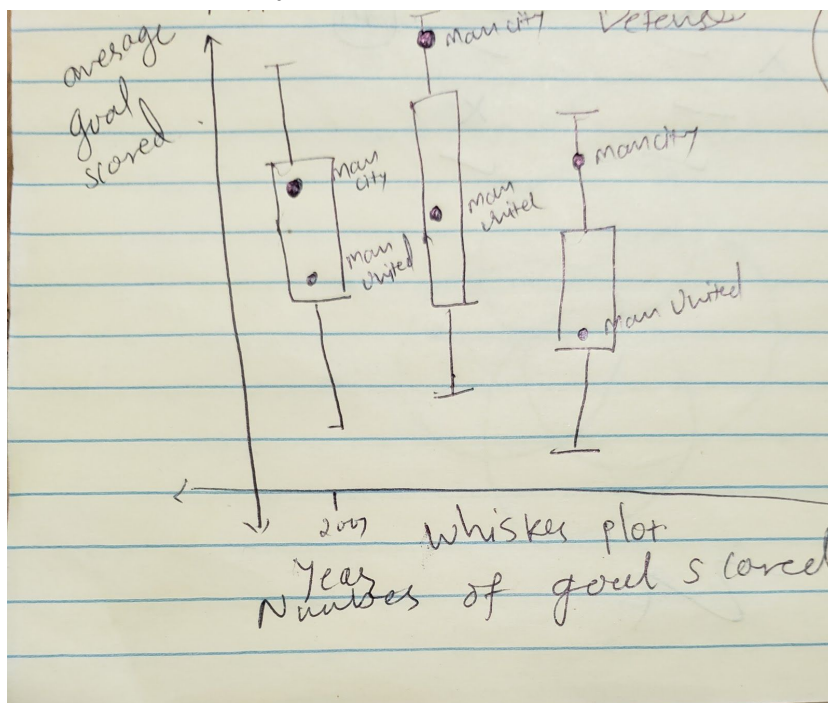 average
goal
scored
Man city
Defense
Man
city
Man
United
Man
United
Man city
Man United
Whisker plot
Year
Number of goal scored